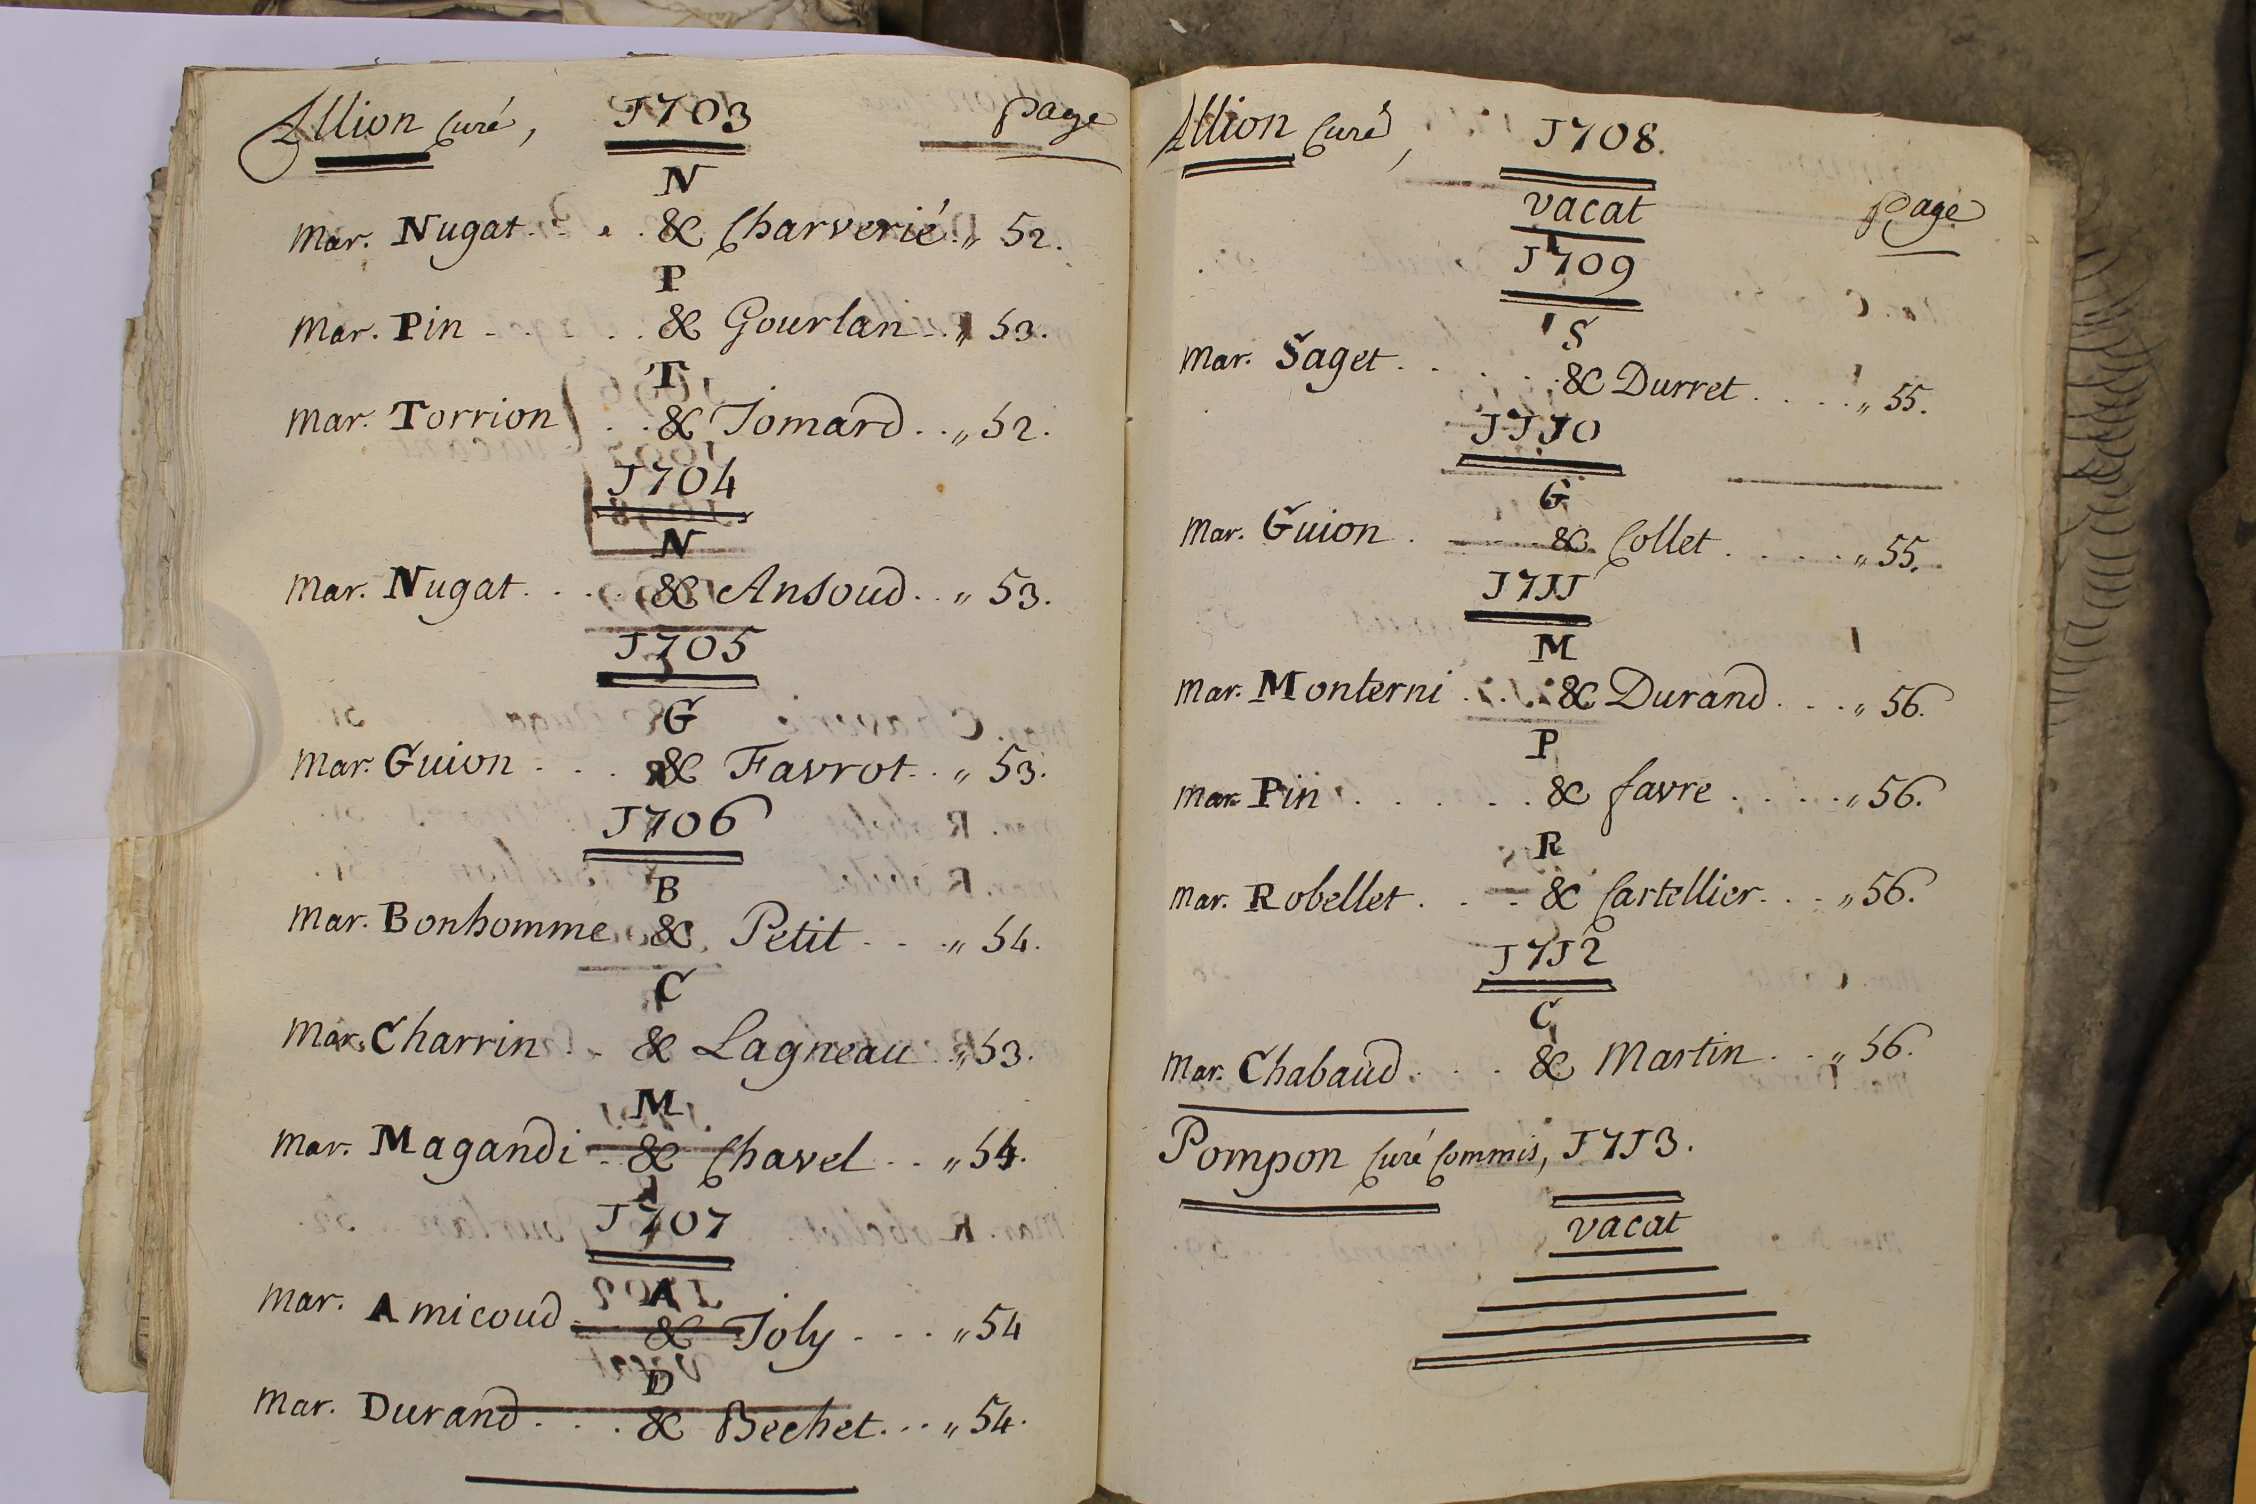 Allion Curé, 1703 page
N
mar. Nugat . . . & Charverié „ 52.
P
mar. Pin . . . . & Gourlan . „ 53.
T
mar. Torrion . . & Jomard . . „ 52.
1704
N
mar. Nugat . . . . & Ansoud . . „ 53.
1705
G
mar. Guion . . . & Favrot . . „ 53.
1706
B
mar. Bonhomme & Petit . . . „ 54.
C
mar. Charrin . . & Lagneau „ 53.
M
mar. Magandi . . & Chavel . . „ 54.
1707
A
mar. Amicoud & Joly . . . „ 54
D
mar. Durand . . . & Bechet . . . „ 54.
Allion Curé, 1708.
vacat
page
1709
S
mar. Saget . . . . . & Durret . . . . „ 55.
1710
G
mar. Guion . . . . & Collet . . . . „ 55.
1711
M
mar. Monterni . . . & Durand . . . „ 56.
P
mar. Pin . . . . . & favre . . . . „ 56.
R
mar. Robellet . . . & Castellier . . . „ 56.
1712
C
mar. Chabaud . . . & Martin . . „ 56.
Pompon Curé Commis, 1713.
vacat